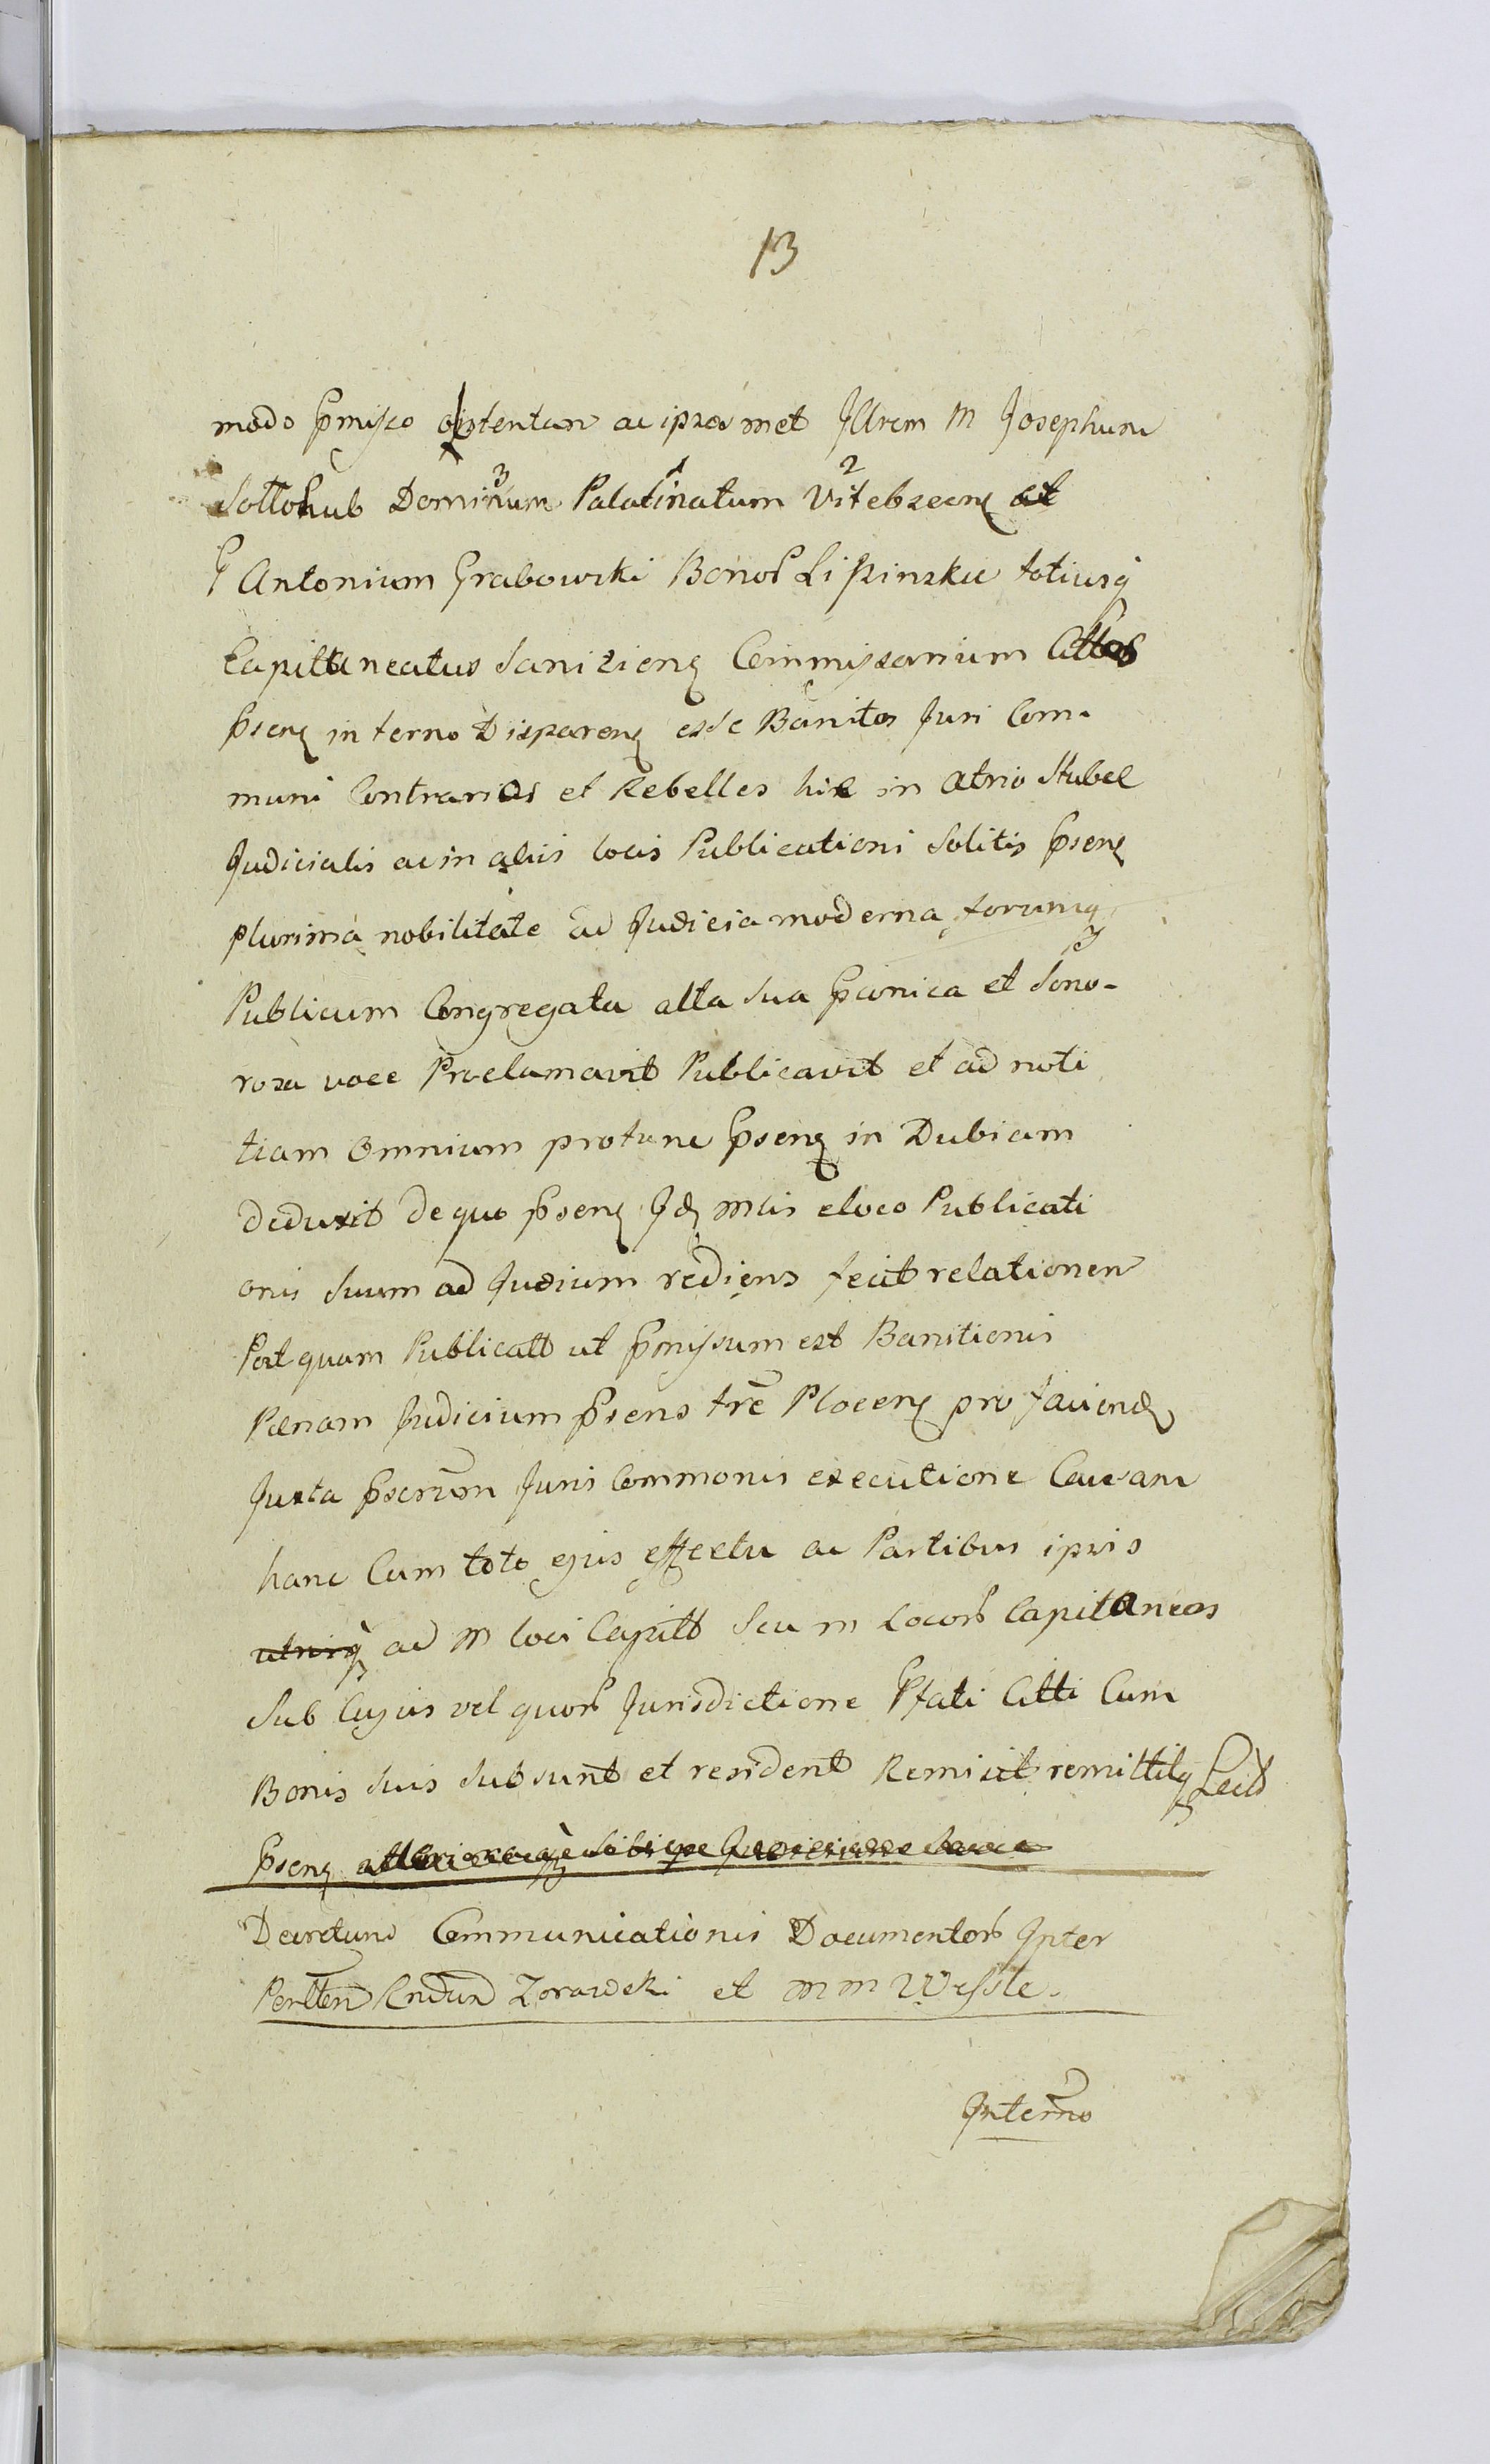 13
modo pmisso obtentan ac ipsosmet Illrem M Josephum
Sollohub Dominum 3 Palatinatum 1 Vitebscen 2 et
G Antonium Grabowski Bonor Lipinskie totiusq
Capittaneatus Janisien Commissarium Cittos
psen in terno Disparen esse Banitos Juri Com-
muni Contrarios et Rebelles hic in atrio Stubae
Judicialis ac in aliis locis Publicationi Solitis psen
plurima nobilitate ad Judicia moderna forumq
Publicum Congregata alta sua pconica et Sono-
rosa voce Proclamavit Publicavit et ad noti
tiam omnium protunc psen in Dubiam
deduxit de quo psen Id Mlis eloco Publicati
onis Suum ad Judium rediens fecit relationem
Post quam Publicatt ut pmissum est Banitionis
Paenam Judicium psens tre Plocen pro faciend
Juxta pscrium Juris Commonis executione Causam
hanc Cum toto ejus effectu ac Partibus ipsis
utrisq ad M loci Capitt Seu m Locor Capitaneos
Sub Cujus vel quor Jurisdictione Pfati Citti Cum
Bonis suis subsunt et resident Remisit remittitq Lecit
psen
Decretum Communicationis Documentor Inter
Perllem Rndum Zorawski et M M Wessle.
Interno